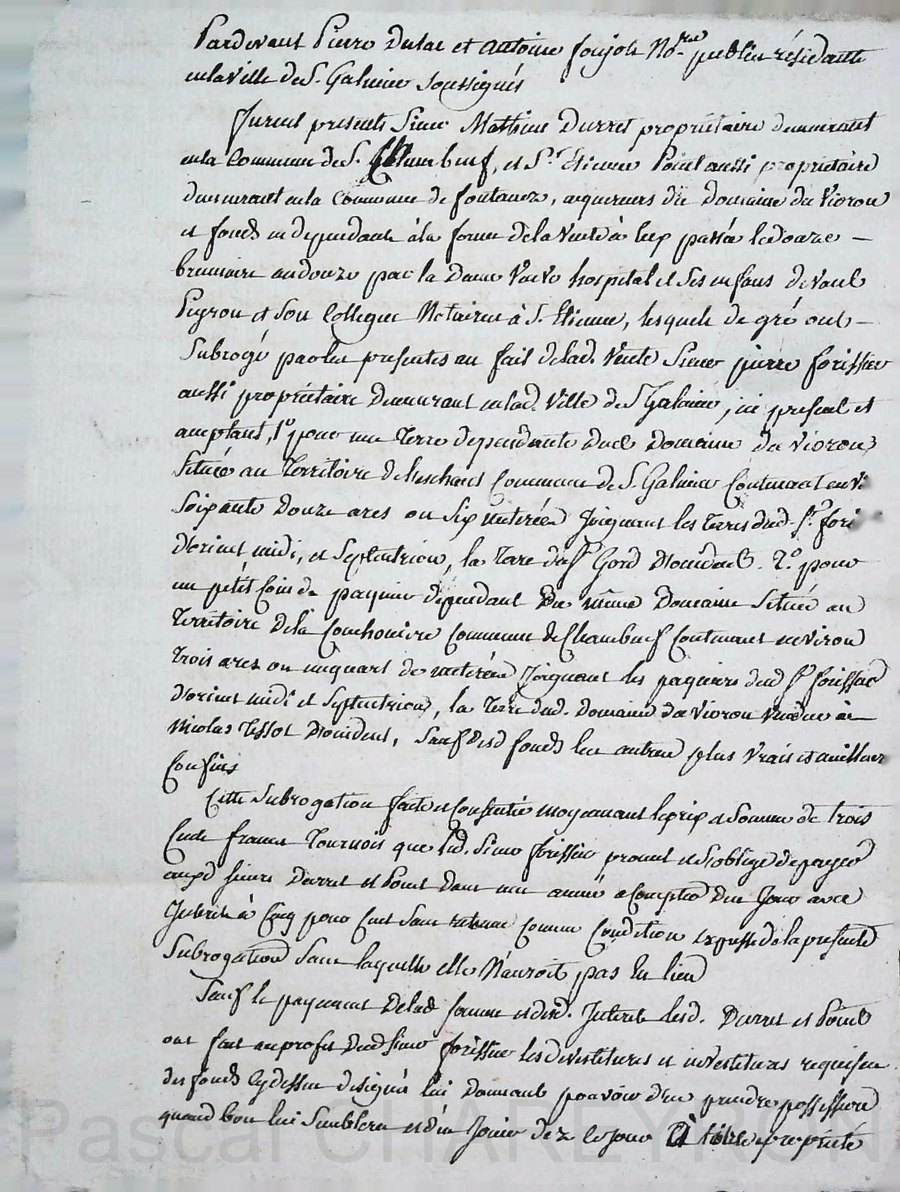 Pardevant Pierre Dulac et Antoine Not.res publics résidants
en la ville de St. Galmier soussignés
Furent présents Sieur Mathieu Durret propriétaire demeurant
en la commune de St. et Sr. Etienne Poncet aussi propriétaire
demeurant en la commune de fontanez, acquereurs du Domaine du Vioron
et fonds en dependants à la forme de la Vente à eux passée le douze –
brumaire an douze par la Dame Veuve hospital et ses enfans devant
Peyron et son Collegue Notaires à St. Etienne, lesquels de gré ont –
Subrogé par les presentes au fait de lad. Vente Sieur pierre forissier
aussi propriétaire demeurant en lad. Ville de St Galmier, ici present et
acceptant, 1º pour une Terre dependante dud Domaine du Vioron
Située au Territoire de Commune de St. Galmier Contenant envi
Soixante Douze ares ou Six meterées Joignant les terres dud. Sr. fori
d'orient midi, et Septentrion, la terre du Sr. Gord d'occident. 2º. pour
un petit coin de paquier dépendant du même Domaine Situé au
Territoire de la Conchonière Commune de Chambœuf Contenant environ
trois ares ou un quart de meterée Joignant les paquiers dud Sr. forissier
d'orient midi et Septentrion, la Terre dud. Domaine du Vioron Vendue à
Nicolas Tessot d'occident, Sauf desd fonds leurs autres plus vrais et meilleurs
Confins
Cette Subrogation faite et Consentie moyennant le prix et Somme de trois
Cents francs Tournois que led. Sieur forissier promet et s'oblige de payer
auxd sieurs Durret et Poncet dans une année à Compter de ce Jour avec
Interets à Cinq pour Cent Sans retenue Comme Condition expresse de la presente
Subrogation Sans laquelle elle N'auroit pas eu lieu
Sauf le payement de lad somme et desd. Interets lesd. Durret et Poncet
ont fait au profit dud Sieur forissier les devestitures et investitures requises
des fonds cydessus designés lui Donnant pouvoir d'en prendre possession
quand bon lui Semblera et d'en Jouir dez ce Jour à titre de propriété
Pascal CHAREYRON